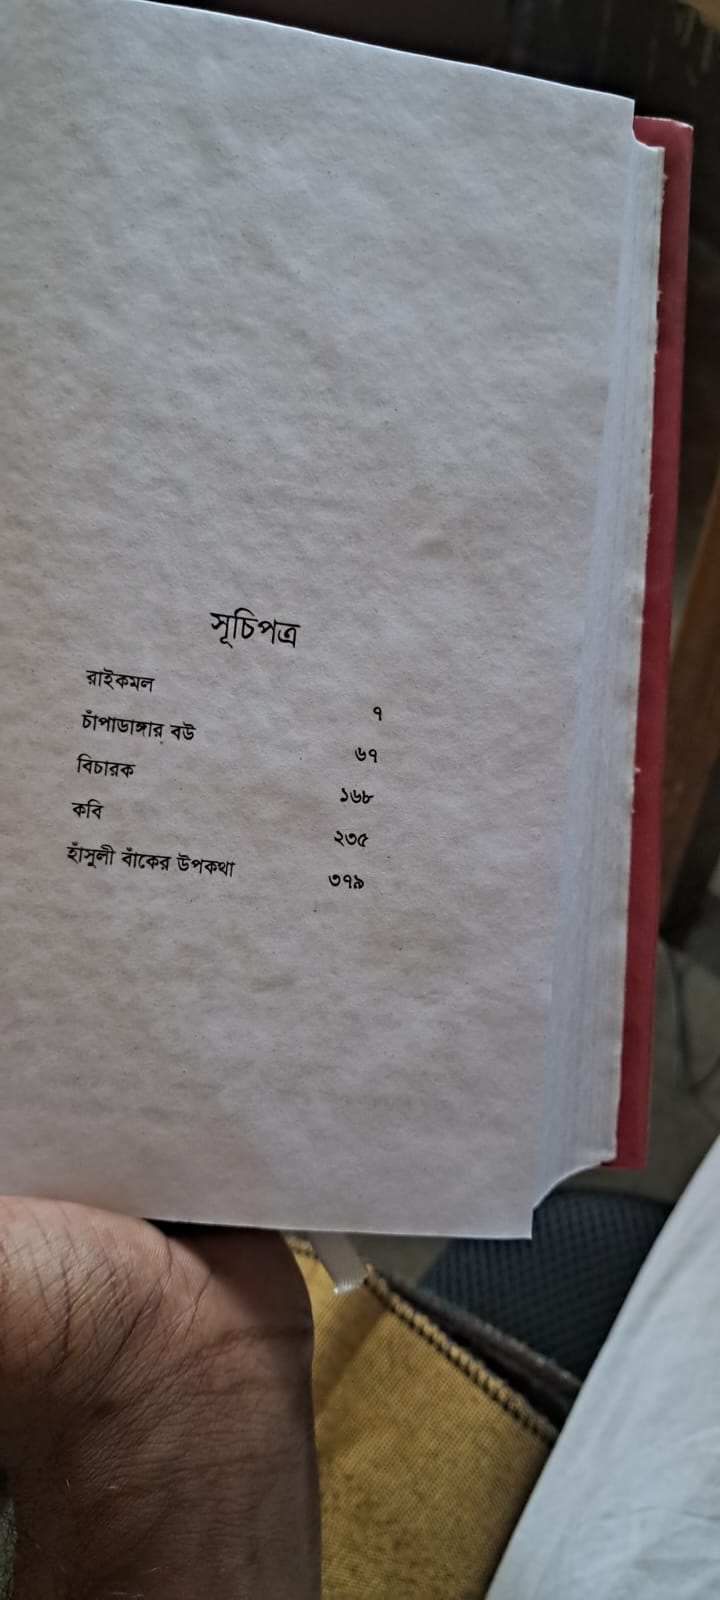 সূচিপত্র
রাইকমল ৭
চাঁপাডাঙ্গার বউ ৬৭
বিচারক ১৬৮
কবি ২৩৫
হাঁসুলী বাঁকের উপকথা ৩৭৯